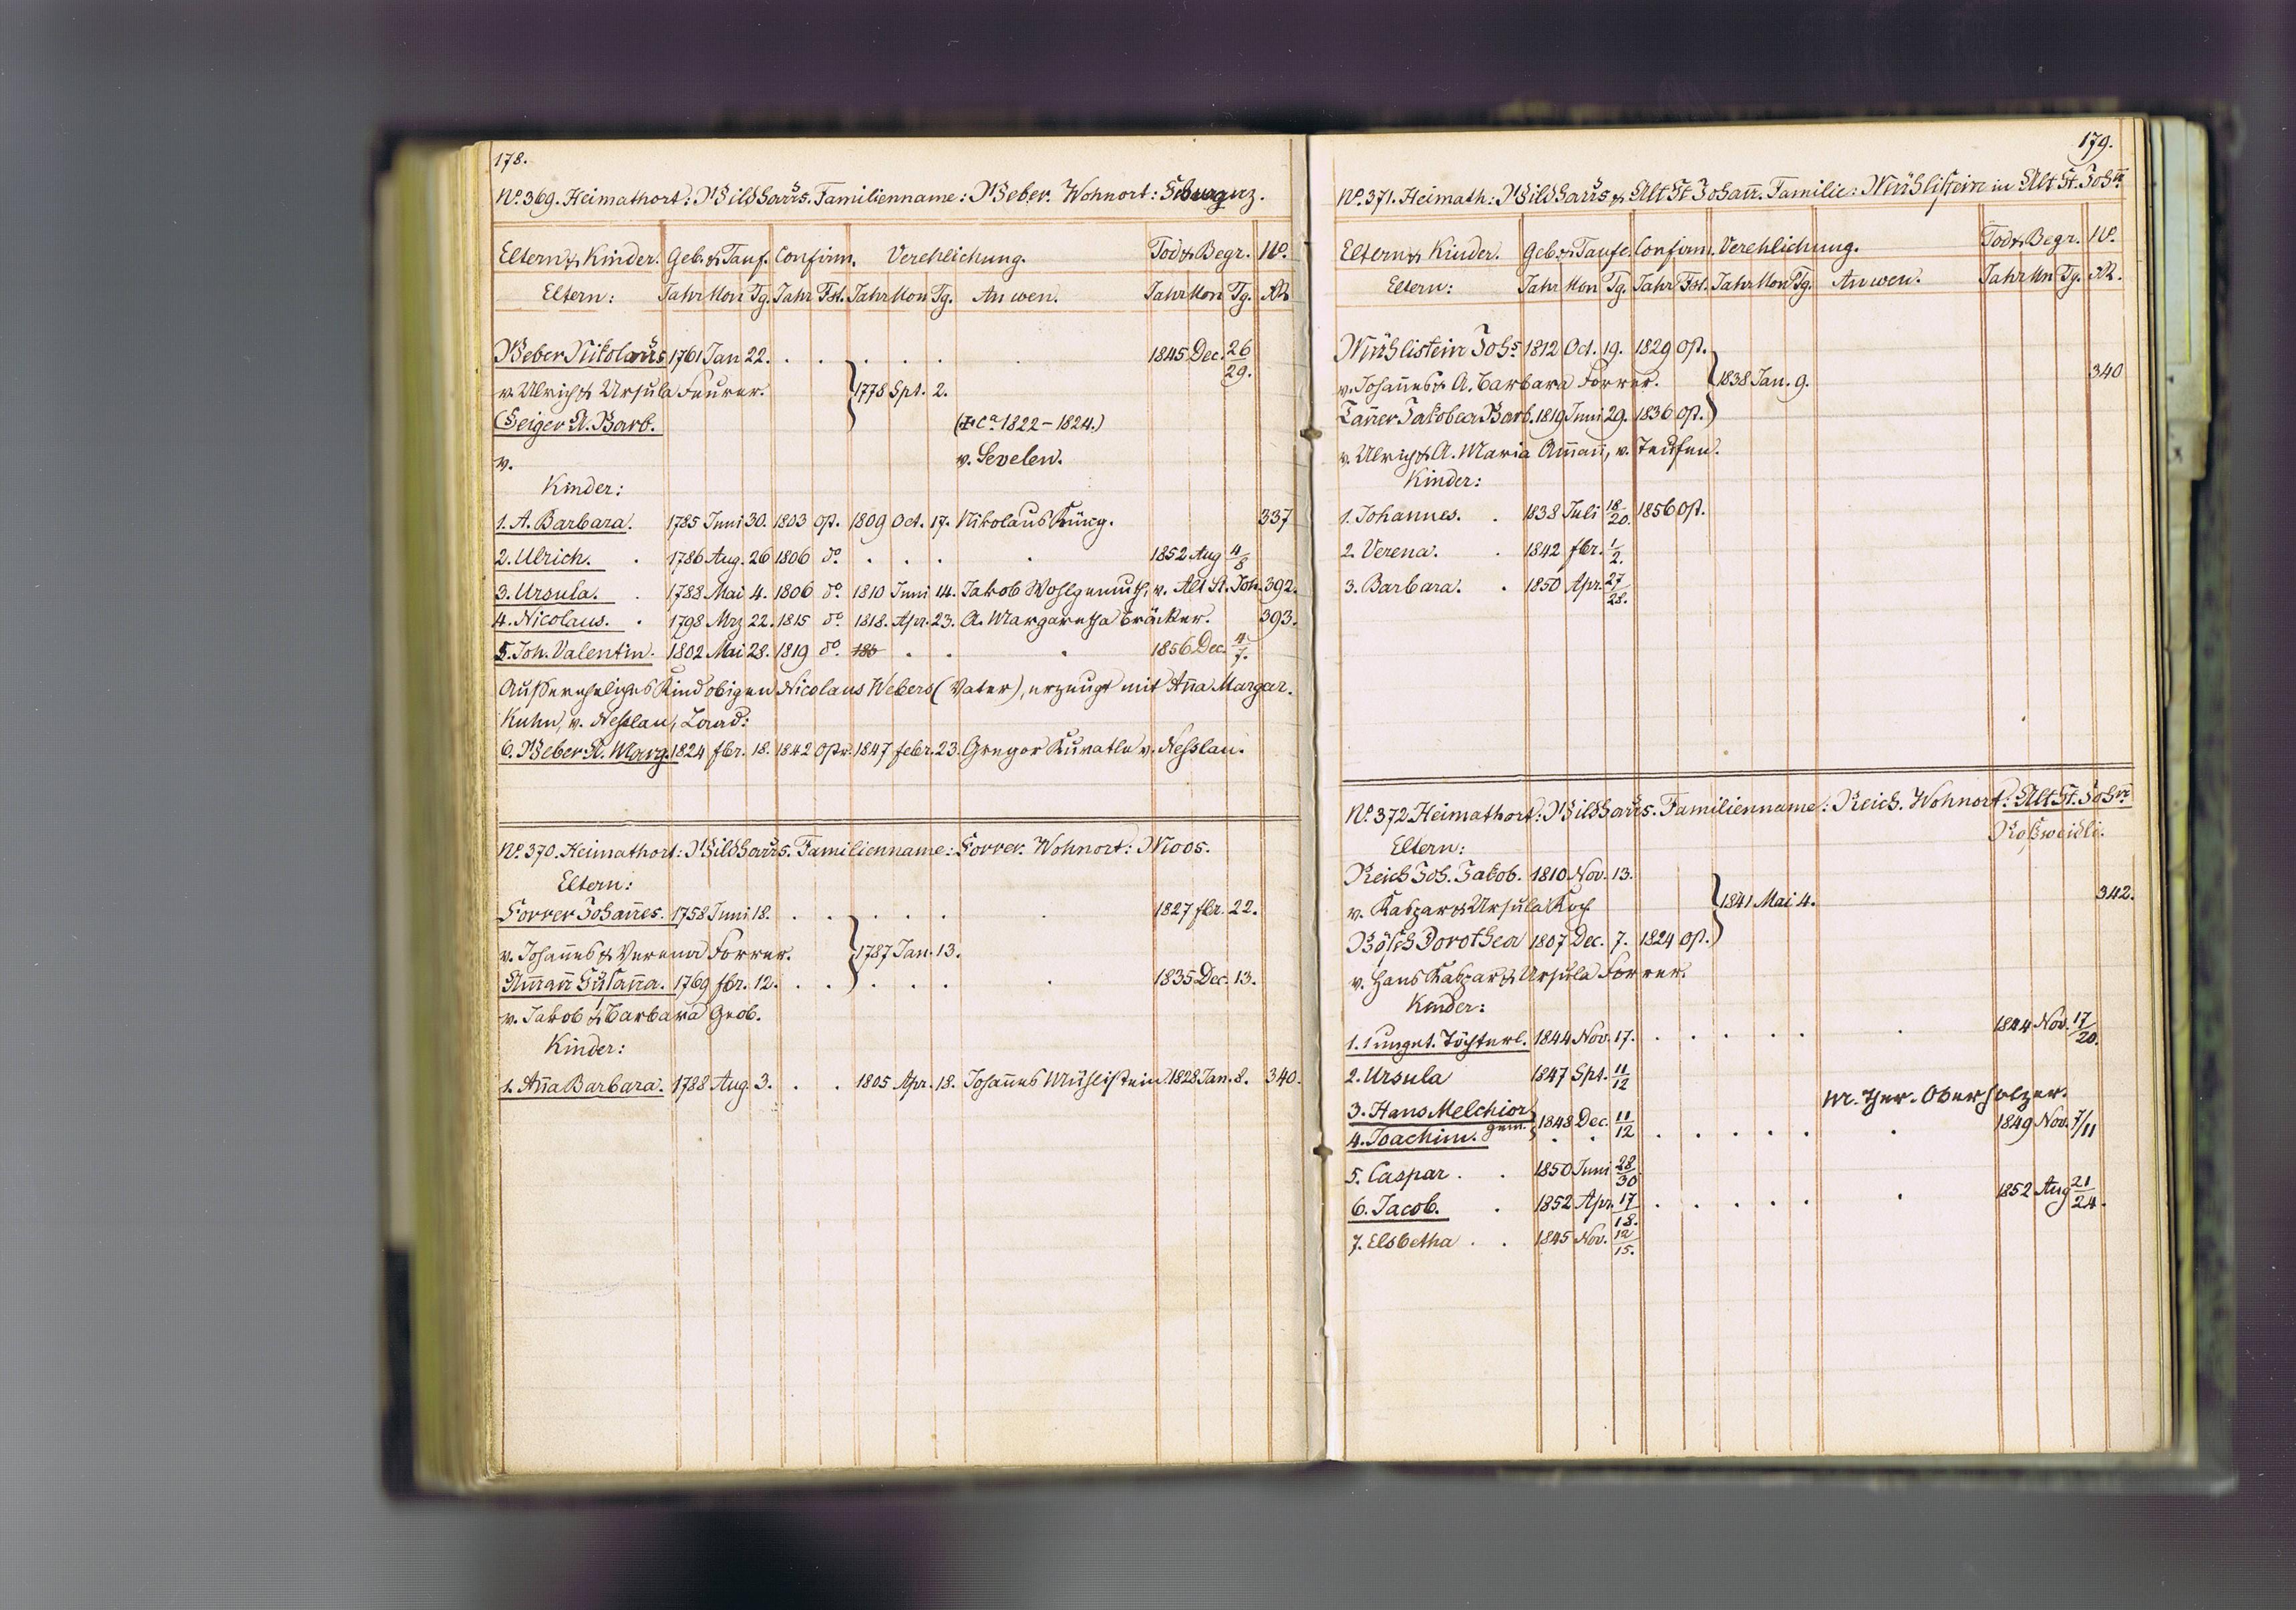 178.
No. 369. Heimathort: Wildhaus. Familienname: Weber. Wohnort:
Eltern & Kinder. Geb. & Tauf. Confirm. Verehlichung. Tod & Begr. No.
Eltern: Jahr Mon Tg. Jahr Fst. Jahr Mon Tg. An wen. Jahr Mon Tg.
Weber Nikolaus 1761 Jan 22. . . . . . . 1845 Dec. 26/29.
v. Ulrich & Ursula Feurer. } 1778 Spt. 2.
Geiger A. Barb. (✝ Ca 1822 – 1824.)
v. v. Sevelen.
Kinder:
1. A. Barbara. 1785 Juni 30. 1803 Op. 1809 Oct. 17. Nikolaus Küng. 337
2. Ulrich. . 1786 Aug. 26 1806 do. . . . . 1852 Aug 4/8
3. Ursula. . 1788 Mai 4. 1806 do 1810 Juni 14. Jakob Wohlgemuth, v. Alt St. Joh. 392.
4. Nicolaus. . 1798 Mrz 22. 1815 do 1818. Apr. 23. A. Margaretha Bräcker. 393.
5. Joh. Valentin. 1802 Mai 28. 1819 do. 185 . . . 1856 Dec. 4/7.
Außereheliches Kind obigen Nicolaus Webers (Vater), erzeugt mit Aña Margar.
Kuhn, v. Neßlau,
6. Weber A. Marg. 1824 fbr. 18. 1842 Opr. 1847 febr. 23. Gregor Kuratle v. Neßlau.
No. 370. Heimathort: Wildhaus. Familienname: Forrer. Wohnort: Moos.
Eltern:
Forrer Johañes. 1758 Juni 18. . . . . . . 1827 fbr. 22.
v. Johañes & Verena Forrer. } 1787 Jan. 13.
Am̄añ Susaña. 1769 fbr. 12. . . . . . . 1835 Dec. 13.
v. Jakob & Barbara Grob.
Kinder:
1. Aña Barbara. 1788 Aug. 3. . . 1805 Apr. 18. Johañes Mühlistein. 1828 Jan. 8. 340.
179.
No. 371. Heimath: Wildhaus & Alt St Johañ. Familie: Mühlistein in Alt St. Johñ
Eltern & Kinder. Geb. & Taufe. Confirm. Verehlichung. Tod & Begr. No.
Eltern: Jahr Mon Tg. Jahr Fst. Jahr Mon Tg. An wen. Jahr Mn Tg.
Mühlistein Johs 1812 Oct. 19. 1829 Op.
v. Johañes & A. Barbara Forrer. } 1838 Jan. 9. 340
Tañer Jakobea Barb. 1819 Juni 29. 1836 Op.
v. Ulrich & A. Maria Am̄añ, v. Teufen.
Kinder:
1. Johannes. . 1838 Juli 18/20. 1856 Op.
2. Verena. . 1842 fbr. 1/2.
3. Barbara. . 1850 Apr. 27/28.
No. 372. Heimathort: Wildhaus. Familienname: Reich. Wohnort: Alt St. Johñ
Roßweidli.
Eltern:
Reich Joh. Jakob. 1810 Nov. 13.
v. Kaspar & Ursula Koch } 1841 Mai 4. 342.
Bösch Dorothea 1807 Dec. 7. 1824 Op.
v. Hans Kaspar & Ursula Forrer.
Kinder:
1. 1 unget. Töchterl. 1844 Nov. 17. . . . . . . 1844 Nov. 17/20.
2. Ursula 1847 Spt. 11/12
m. Ther. Oberholzer.
3. Hans Melchior } 1848 Dec. 11/12
4. Joachim. gem. . . . . . . . . 1849 Nov. 7/11
5. Caspar . . 1850 Juni 28/30
6. Jacob. . 1852 Apr. 17/18. . . . . . . 1852 Aug 21/24.
7. Elsbetha . . 1845 Nov. 12/15.